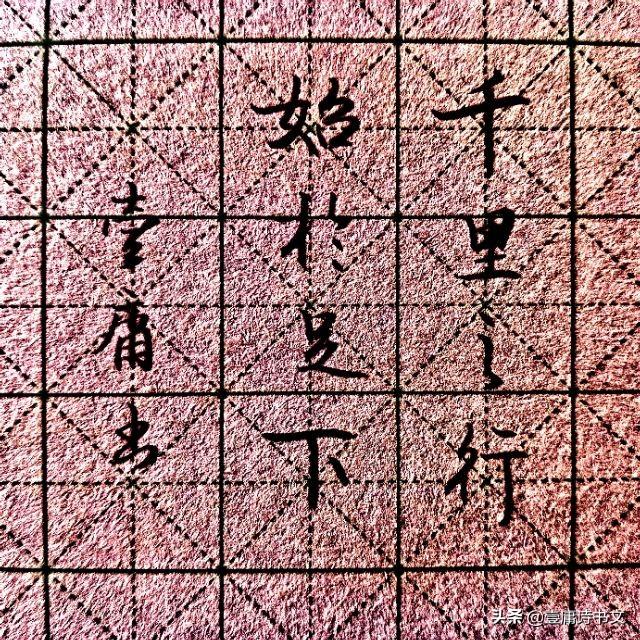 千里之行
始於足下
壹庸书
头条 @壹庸诗书文